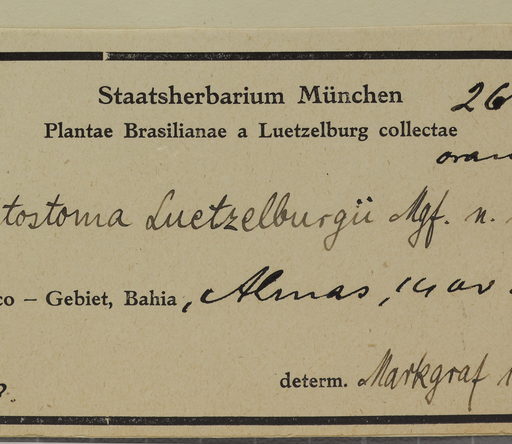 Staatsherbarium München 26
Plantae Brasilianae a Luetzelburg collectae
oran
tostoma Luetzelburgii Mgf. n.
co – Gebiet, Bahia, Almas, nov
determ. Markgraf